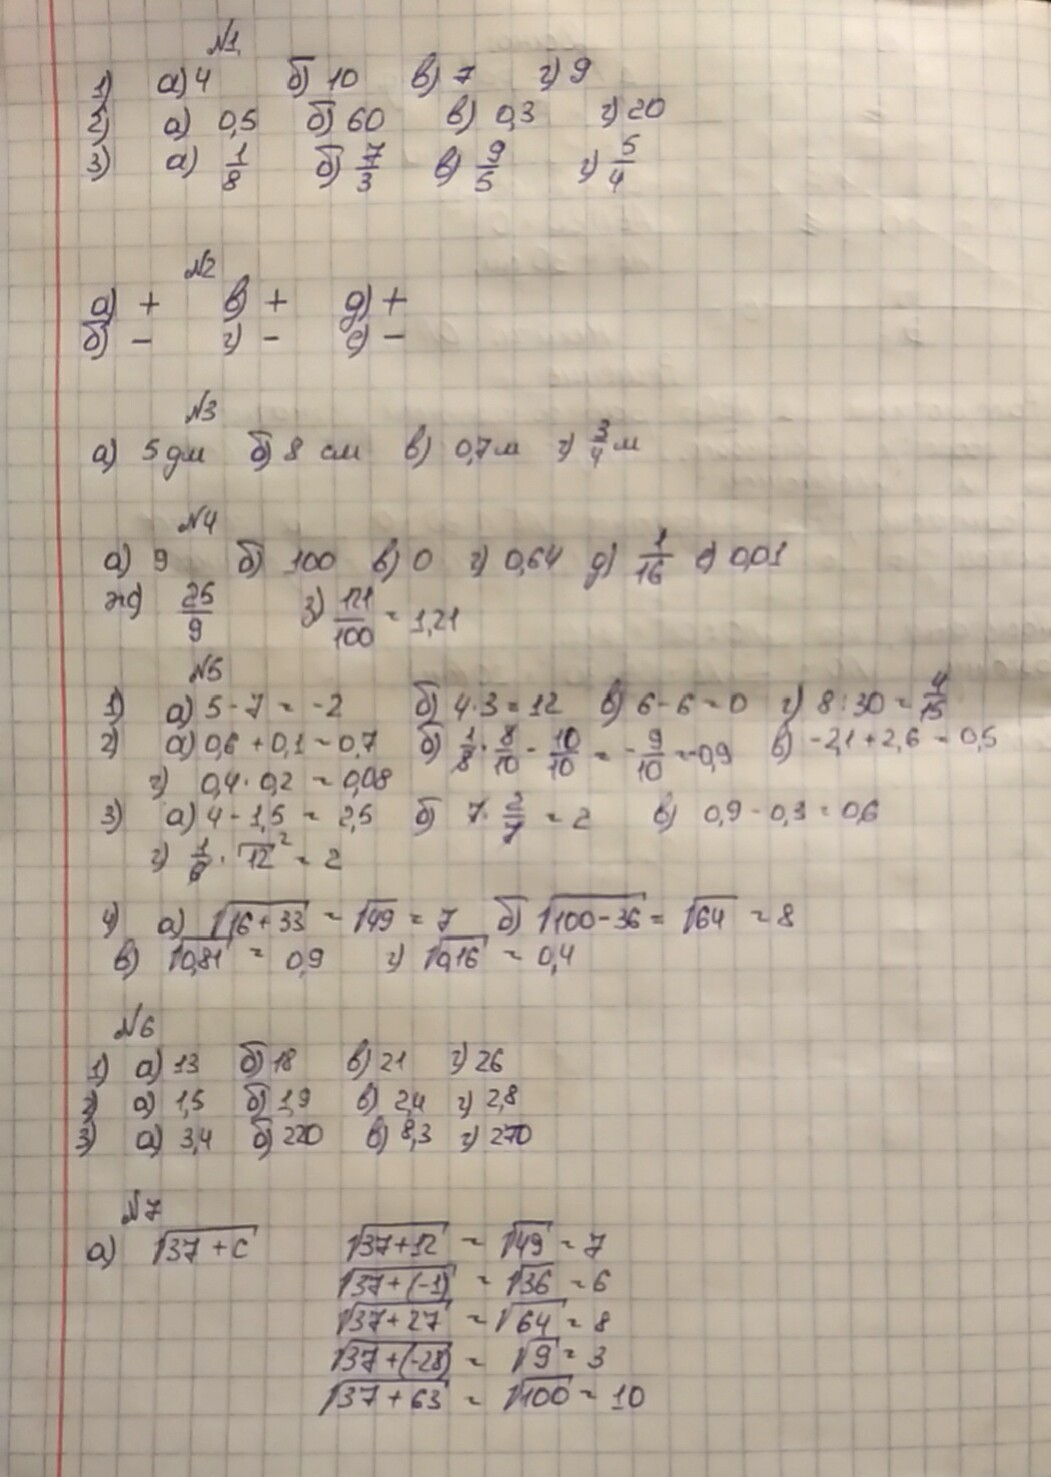 №1.
1) а) 4 б) 10 в) 7 г) 9
2) а) 0,5 б) 60 в) 0,3 г) 20
3) а) 1/8 б) 7/3 в) 9/5 г) 5/4
№2
а) + в) + д) +
б) - г) - е) -
№3
а) 5 дм б) 8 см в) 0,7 м г) 3/4 м
№4
а) 9 б) 100 в) 0 г) 0,64 д) 1/16 е) 0,01
ж) 25/9 з) 121/100 = 1,21
№5
1) а) 5 - 7 = -2 б) 4 · 3 = 12 в) 6 - 6 = 0 г) 8 : 30 = 4/15
2) а) 0,6 + 0,1 = 0,7 б) 1/8 · 8/10 - 10/10 = -9/10 = -0,9 в) -2,1 + 2,6 = 0,5
г) 0,4 · 0,2 = 0,08
3) а) 4 - 1,5 = 2,5 б) 7 · 2/7 = 2 в) 0,9 - 0,3 = 0,6
г) 1/6 · 12² = 2
4) а) √16+33 = √49 = 7 б) √100-36 = √64 = 8
в) √0,81 = 0,9 г) √0,16 = 0,4
№6
1) а) 13 б) 18 в) 21 г) 26
2) а) 1,5 б) 1,9 в) 2,4 г) 2,8
3) а) 3,4 б) 220 в) 8,3 г) 270
№7
а) √37 + c √37+12 = √49 = 7
√37+(-1) = √36 = 6
√37+27 = √64 = 8
√37+(-28) = √9 = 3
√37+63 = √100 = 10